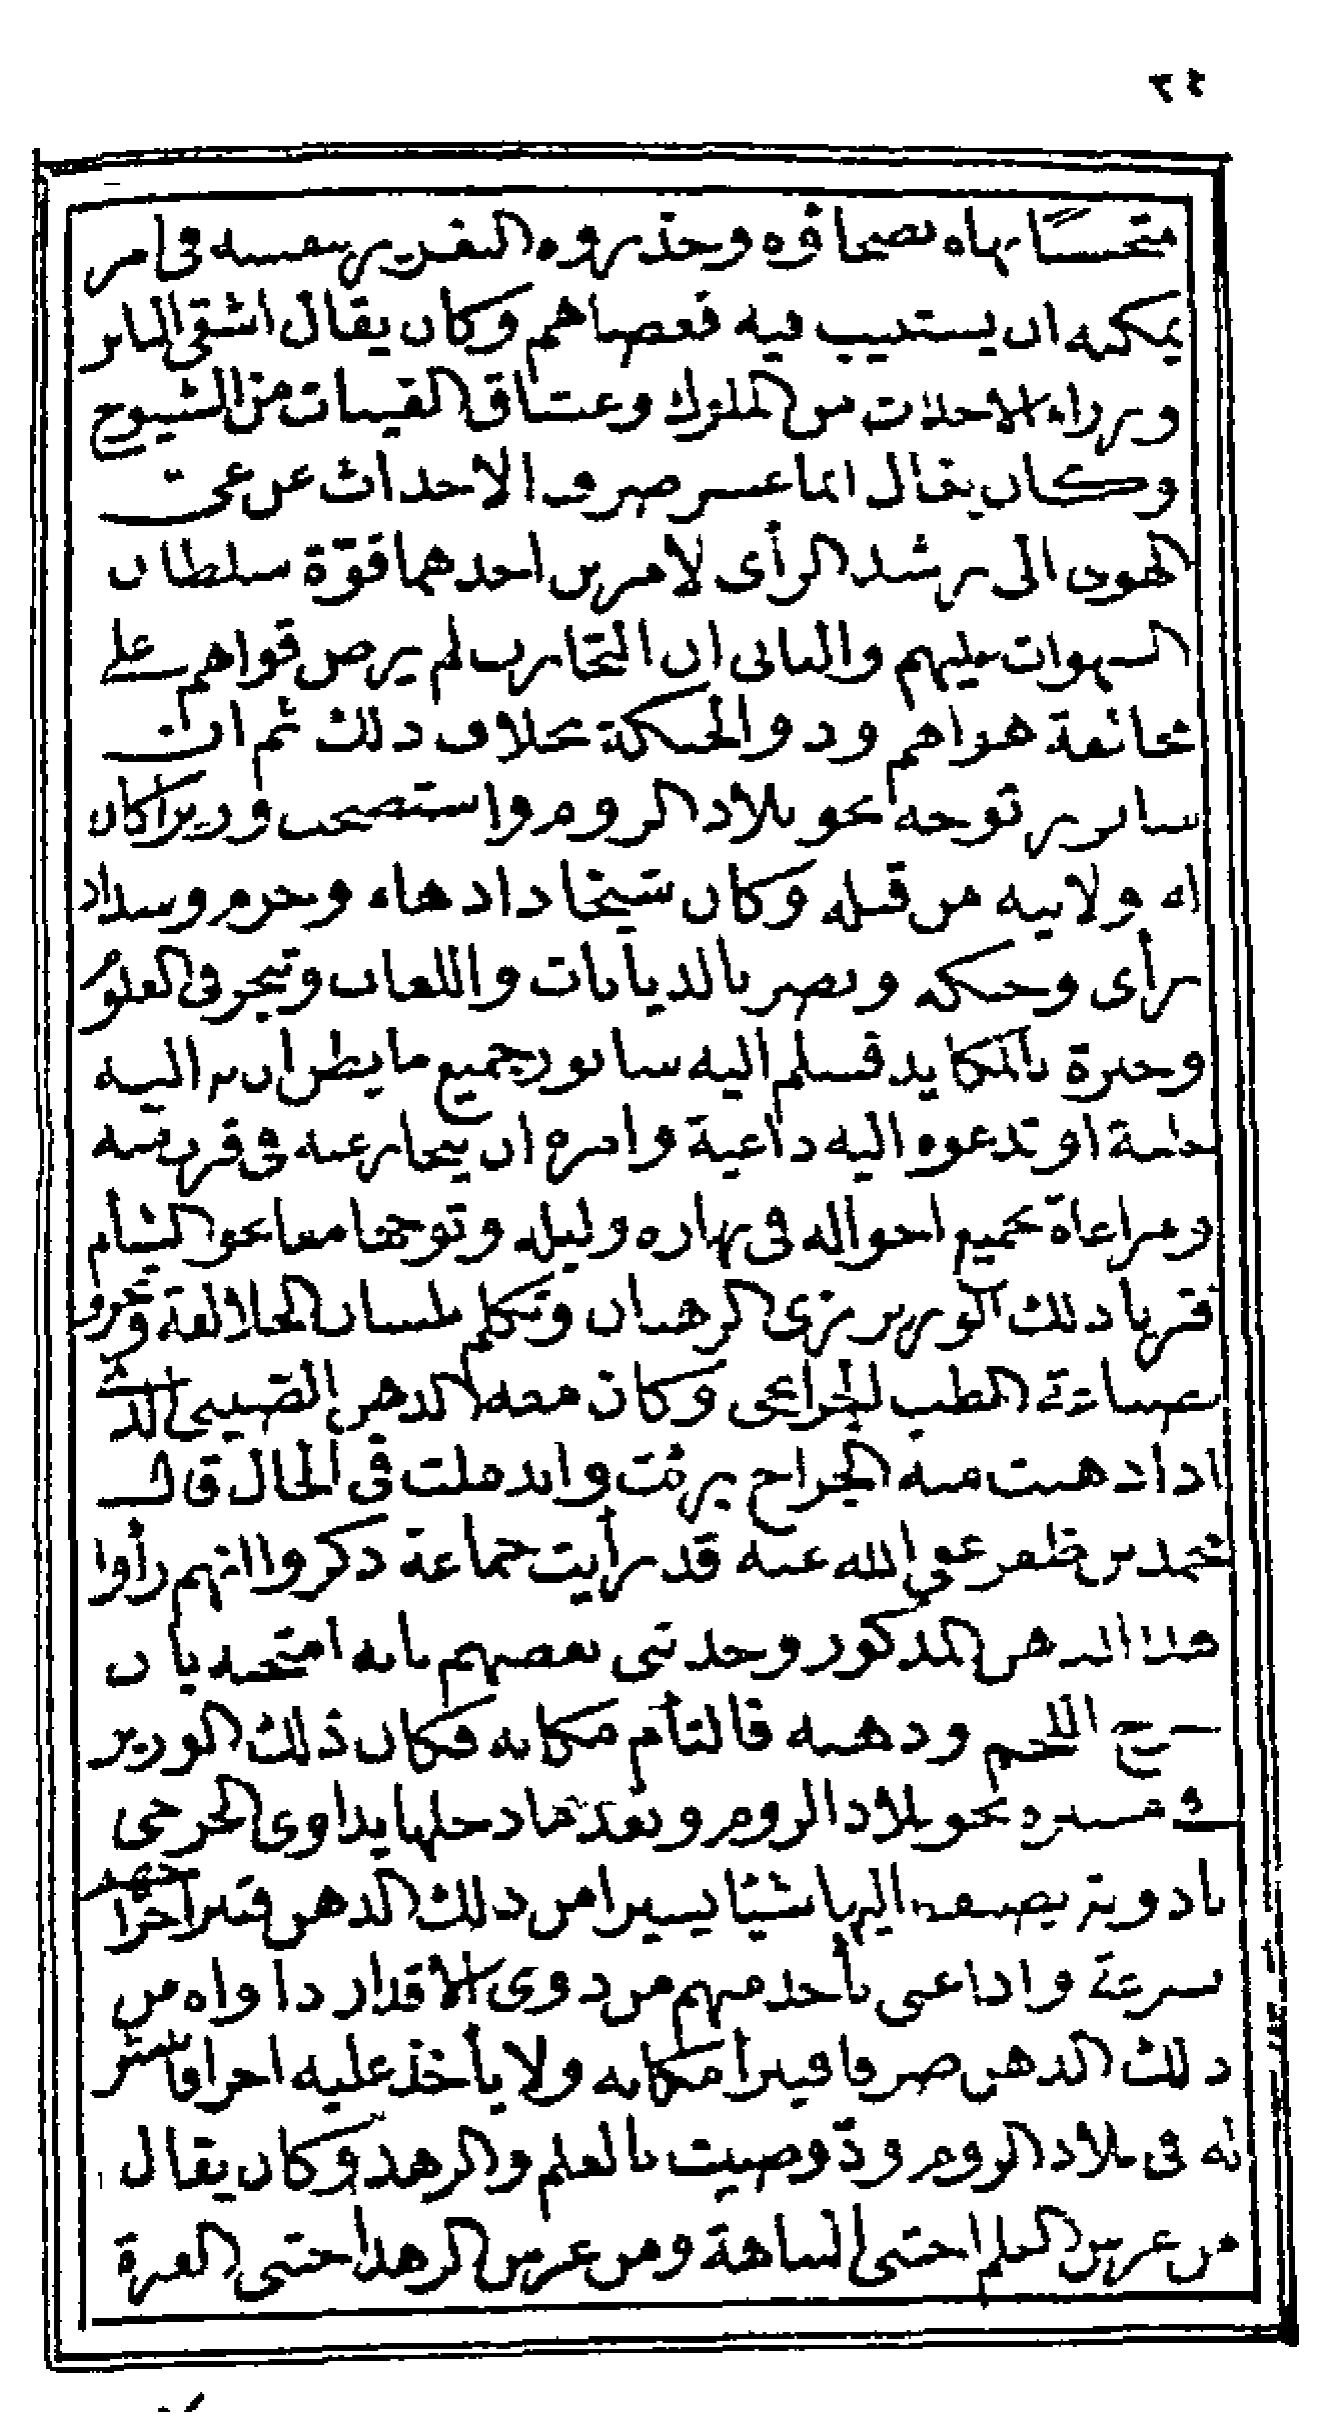 ٢٤
متجسسا نهاه نصحاؤه وحذروه التغرير بنفسه فى امر
يمكنه ان يستنيب فيه فعصاهم وكان يقال اشقى الناس
وزراء الاحداث من الملوك وعشاق الفتيات من الشيوخ
وكان يقال انما عسر صرف الاحداث عن غى
الهوى الى رشد الرأى لامرين احدهما قوّة سلطان
الشهوات عليهم والثانى ان التجارب لم يرض قواهم على
مخالفة هواهم وذو الحنكة بخلاف ذلك ثم ان
سابور توجه نحو بلاد الروم واستصحب وزيرا كان
له ولابيه من قبله وكان شيخا ذا دهاء وحزم وسداد
رأى وحنكه وبصر بالديانات واللغات وتبحر فى العلوم
وخبرة بالمكايد فسلم اليه سابور جميع ما يظن ان به اليه
حاجة او تدعوه اليه داعية وامره ان ينحاز عنه فى قربه منه
ومراعاة جميع احواله فى نهاره وليله وتوجها معا نحو الشأم
فتزيا ذلك الوزير بزى الرهبان وتكلم بلسان الجلالقة وتحرف
بصناعة الطب الجراعى وكان معه الدهن الصينى الذى
اذا دهنت منه الجراح برئت واندملت فى الحال قال
محمد بن ظفر عفى الله عنه قد رأيت جماعة ذكروا انهم رأوا
هذا الدهن المذكور وحدثنى بعضهم بانه امتحنه بان
شرح اللحم ودهنه فالتأم مكانه فكان ذلك الوزير
فى مسيره نحو بلاد الروم وبعد ما دخلها يداوى الجرحى
بادوية يضيف اليها شيئا يسيرا من ذلك الدهن فتبرأ جراحهم
بسرعة واذا عنى بأحد منهم من ذوى الاقدار داواه من
ذلك الدهن صرفا فيبرأ مكانه ولا يأخذ عليه اجرا فانتشر
له فى بلاد الروم وذّ وصيت بالعلم والزهد وكان يقال
من غرس العلم اجتنى النباهة ومن غرس الزهد اجتنى العزة